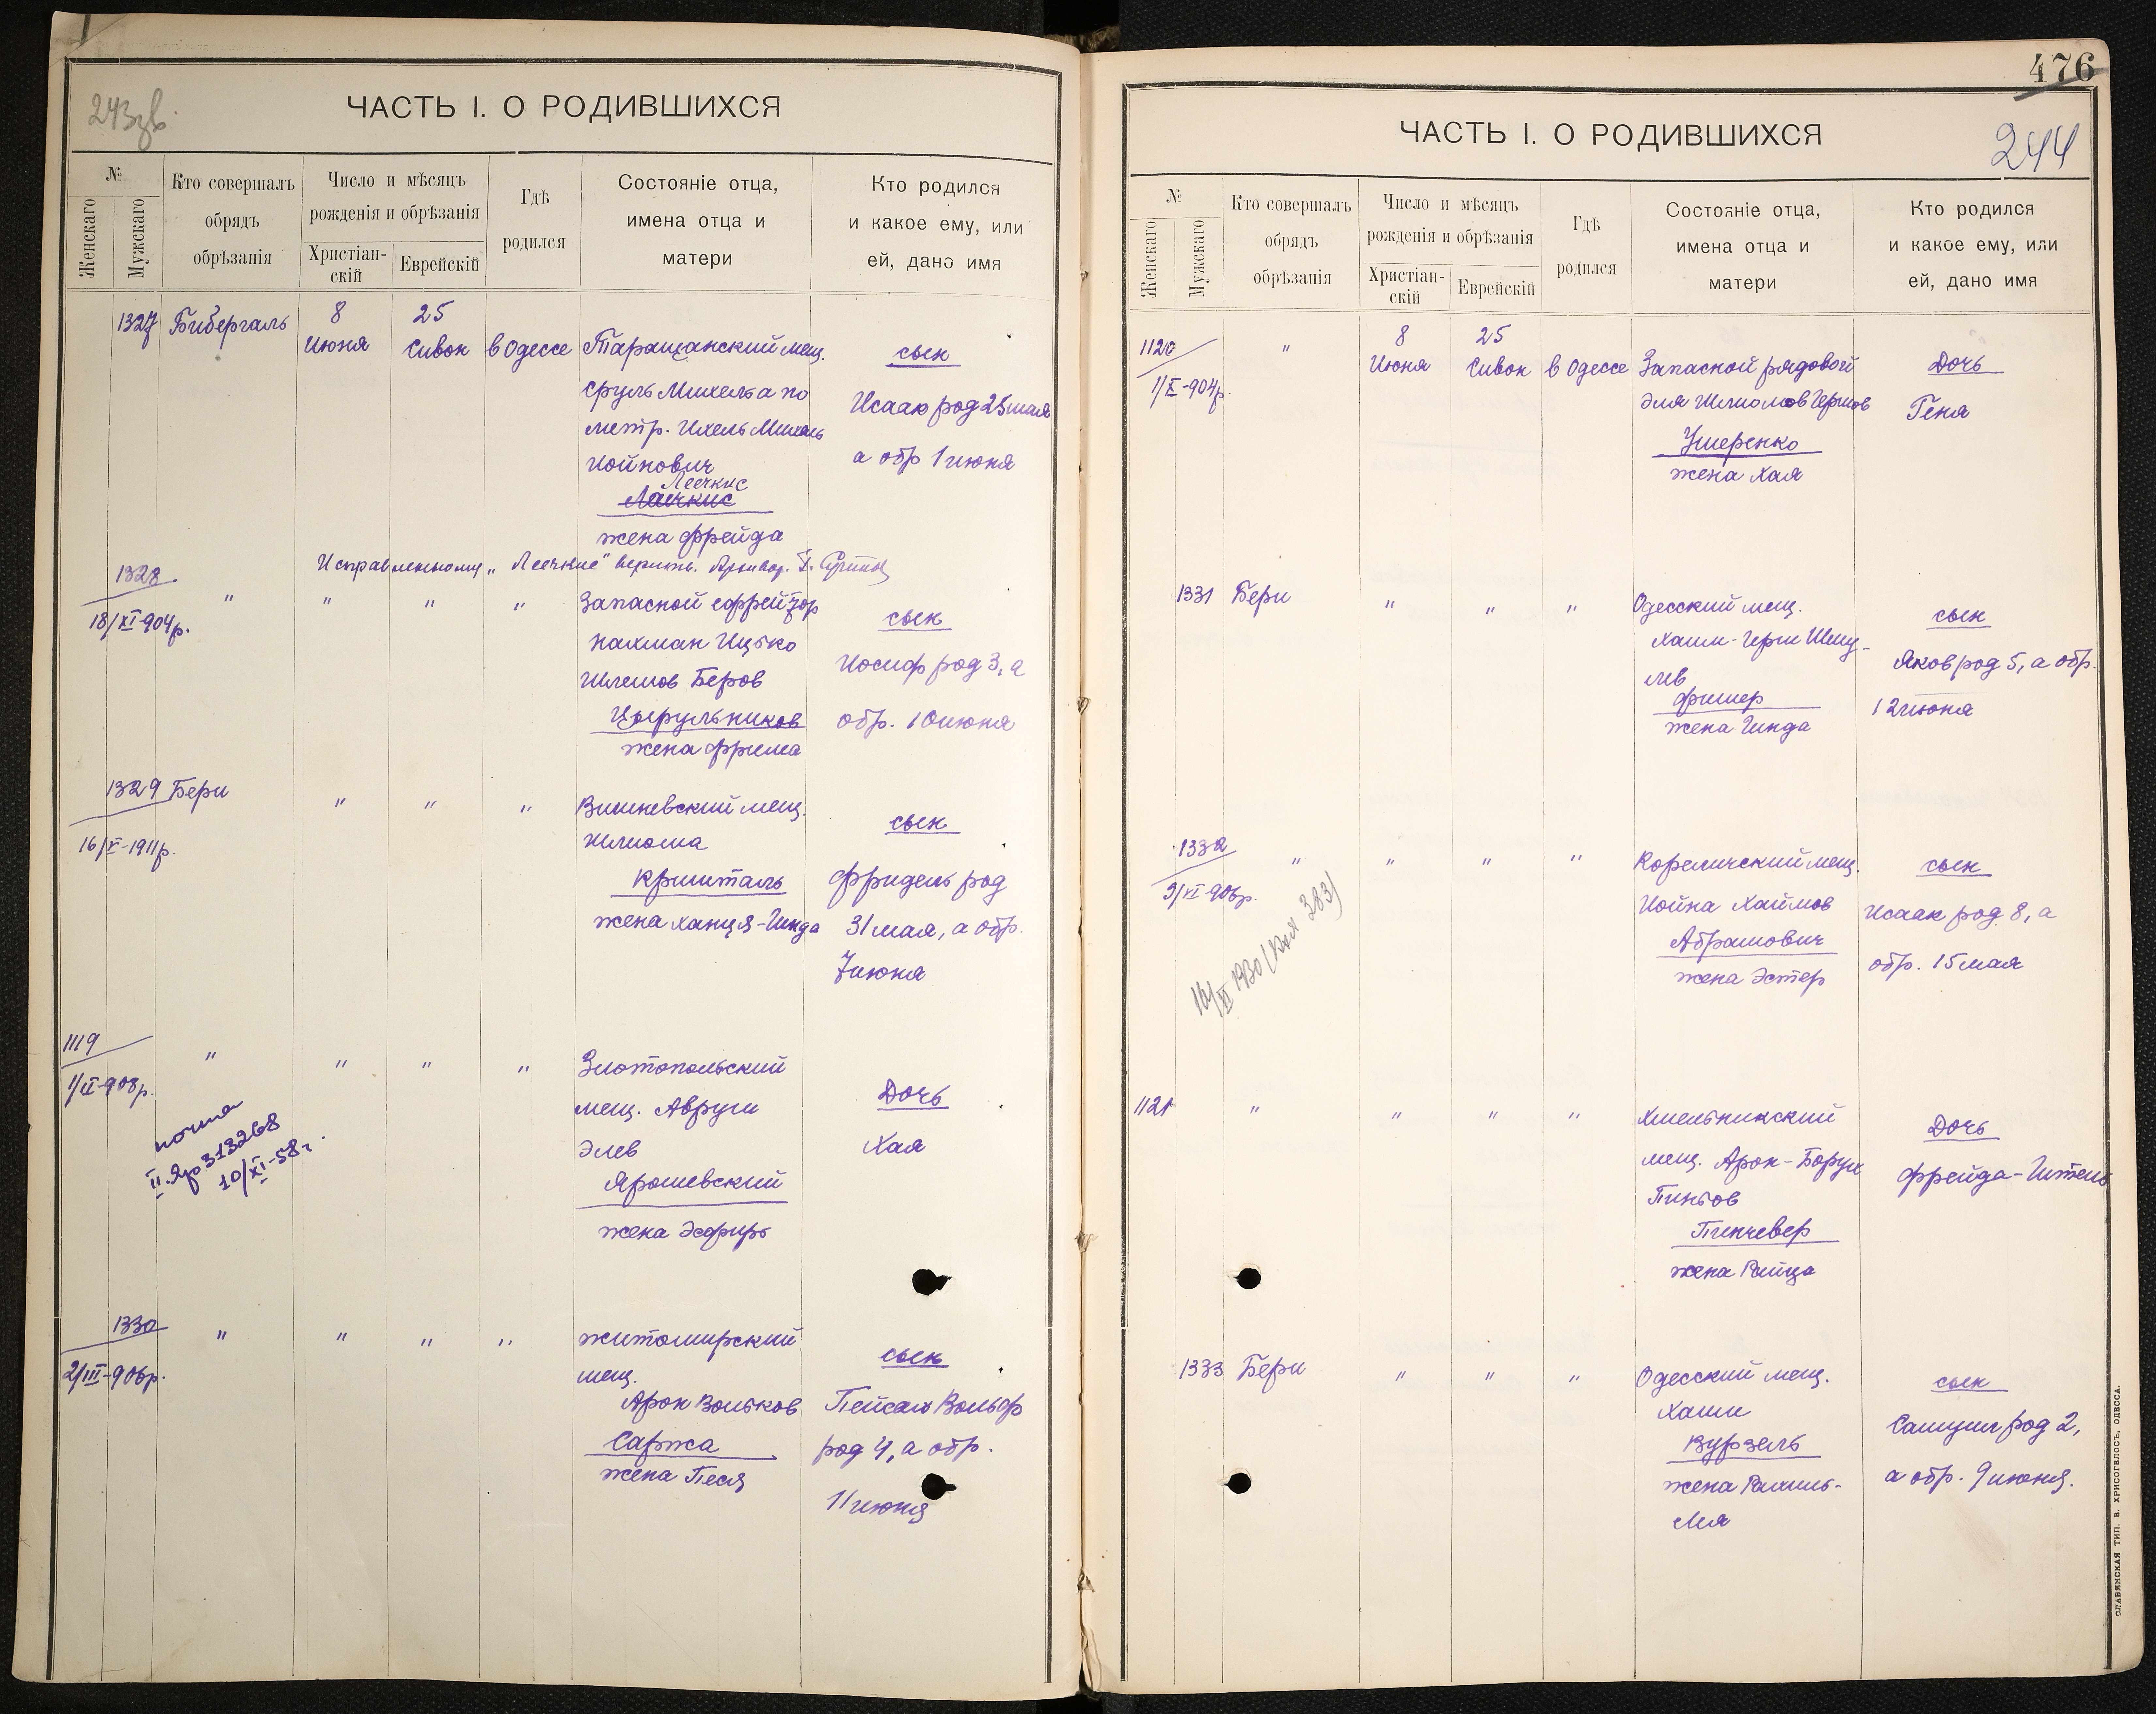 243зв.
ЧАСТЬ I. О РОДИВШИХСЯ
№
Женскаго
Мужскаго
Кто совершалъ
обрядъ
обрѣзанія
Число и мѣсяцъ
рожденія и обрѣзанія
Христіан-
скій
Еврейскій
Гдѣ
родился
Состояніе отца,
имена отца и
матери
Кто родился
и какое ему, или
ей, дано имя
1327 Бибергаль
8 Июня
25 Сивон
в Одессе
Таращанский мещ.
Сруль Михель а по
метр. Ихель Михель
Койнович
Лечкис
жена Фрейда
сын
Исаак род 25 мая
а обр 1 июня
Исправленному „Леечкис" верить.
1328
18/XI-904р.
" " " "
Запасной ефрейтор
Нахман Ицько
Шлемов Беров
Цырульников
жена Фрима
сын
Иосиф род 3, а
обр. 10 июня
1329 Бери
16/V-1911р.
" " "
Вишневский мещ.
Шлиома
Кришталь
жена Ханця-Гинда
сын
Фридель род
31 мая, а обр.
7 июня
1119
1/IX-908р.
почта
10/XI-58г.
" " " "
Златопольский
мещ. Авруш
Элев
Ярошевский
жена Эсфирь
Дочь
Хая
1330
2/III-906р.
" " " "
Житомирский
мещ.
Арон Вольков
Саржа
жена Песя
сын
Пейсах Вольф
род 4, а обр.
11 июня
476
244
ЧАСТЬ I. О РОДИВШИХСЯ
№
Женскаго
Мужскаго
Кто совершалъ
обрядъ
обрѣзанія
Число и мѣсяцъ
рожденія и обрѣзанія
Христіан-
скій
Еврейскій
Гдѣ
родился
Состояніе отца,
имена отца и
матери
Кто родился
и какое ему, или
ей, дано имя
1120
1/X-904р.
"
8 Июня
25 Сивон
в Одессе
Запасной рядовой
Эля Шлиомов Гершов
Ушеренко
жена Хая
Дочь
Геня
1331 Бери
" " "
Одесский мещ.
Хаим-Герш Шму-
лев
Фишер
жена Гинда
сын
Яков род 5, а обр.
12 июня
1332
9/XI-906р.
" " " "
Кореличский мещ.
Иойна Хаимов
Абрамович
жена Эстер
сын
Исаак род 8, а
обр. 15 мая
1121
" " " "
Хмельникский
мещ. Арон-Борух
Пиньов
Пинчевер
жена Рейза
Дочь
Фрейда-Гитель
1333 Бери
" " "
Одесский мещ.
Хаим
Вурзель
жена Рахиль-
Лея
сын
Самуил род 2,
а обр. 9 июня.
СЛАВЯНСКАЯ ТИП. В. ХРИСОГЕЛОСЪ, ОДЕССА.